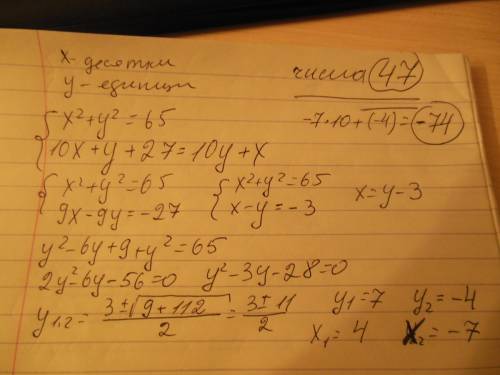 x - десятки
y - единицы
числа 47
{ x²+y²=65
10x+y+27=10y+x
-7·10+(-4)=-74
{ x²+y²=65
9x-9y=-27
{ x²+y²=65
x-y=-3
x=y-3
y²-6y+9+y²=65
2y²-6y-56=0 y²-3y-28=0
y₁,₂= (3±√9+112)/2 = (3±11)/2
y₁=7 y₂=-4
x₁=4 x₂=-7